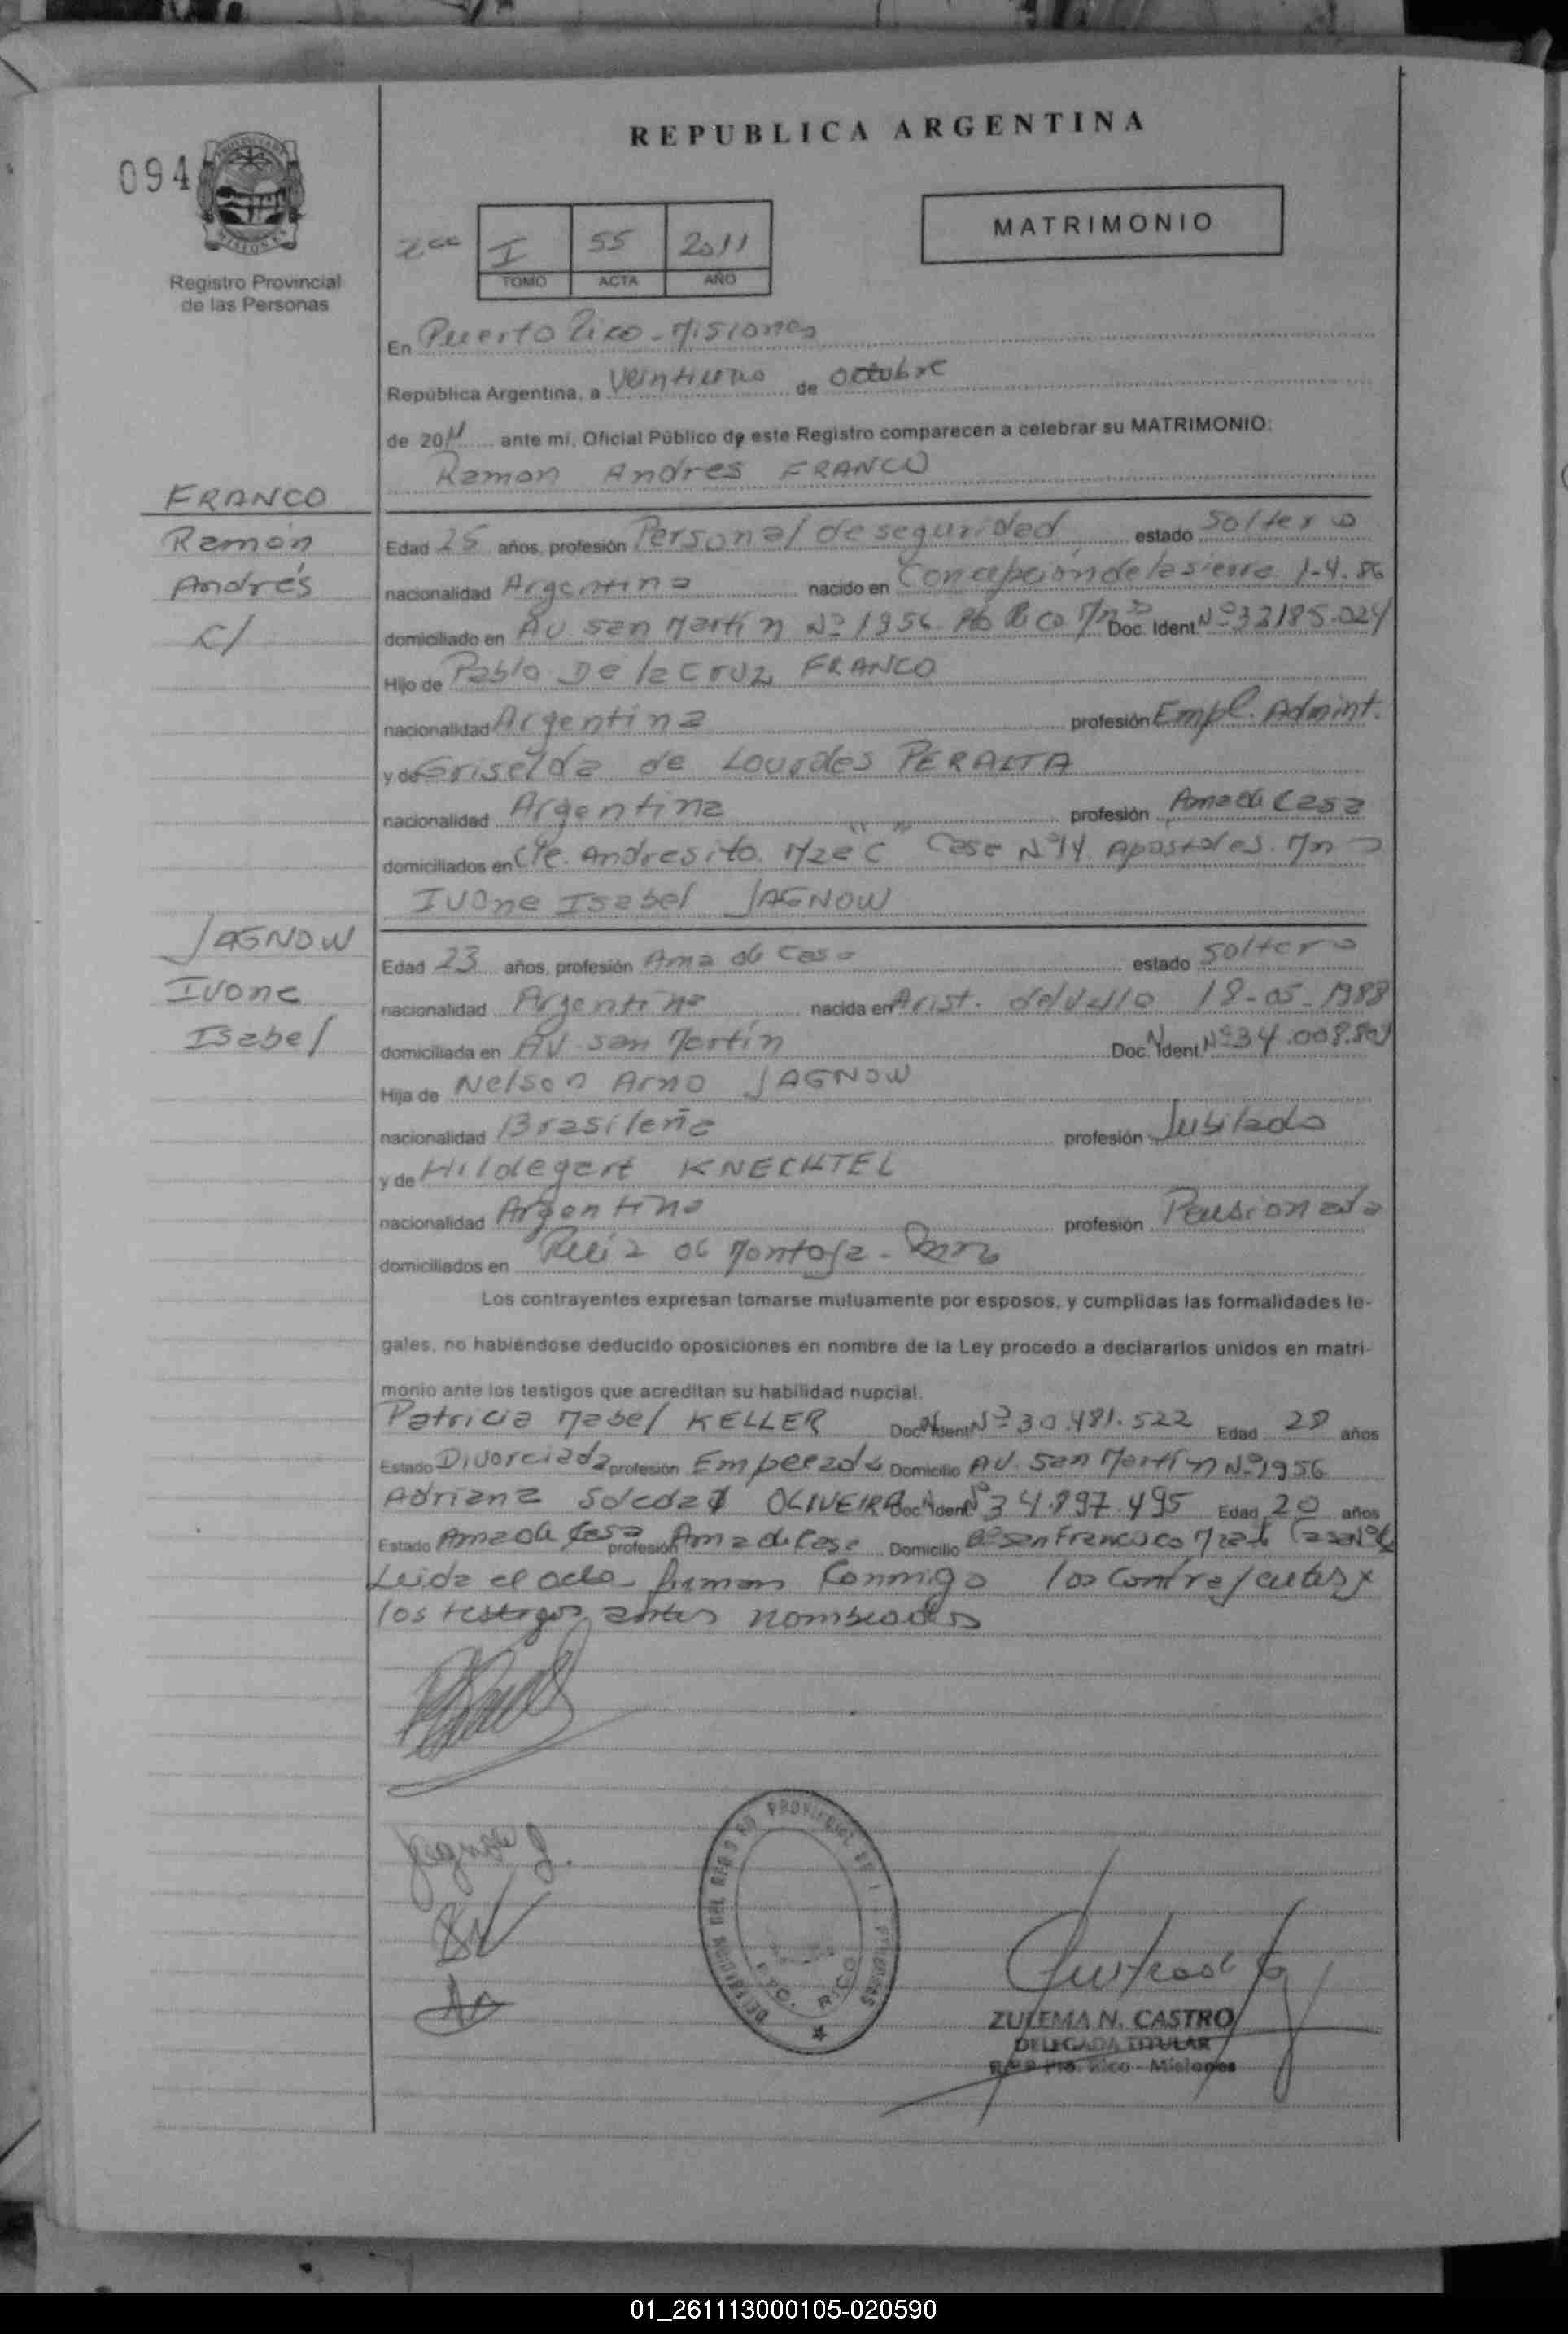 REPUBLICA ARGENTINA
094
MATRIMONIO
I 55 2011
TOMO ACTA AÑO
Registro Provincial
de las Personas
En Puerto Rico - Misiones
República Argentina, a Veintiuno de octubre
de 2011 ante mí, Oficial Público de este Registro comparecen a celebrar su MATRIMONIO:
Ramon Andres FRANCO
FRANCO
Ramón
Andrés
c/
Edad 25 años, profesión Personal de seguridad estado Soltero
nacionalidad Argentina nacido en Concepción de la sierra 1-4-86
domiciliado en AV. San Martín Nº 1956 Pto Rico Mnes Doc. Ident. Nº 32185.024
Hijo de Pablo De la Cruz FRANCO
nacionalidad Argentina profesión Empl. Admint.
y de Griselda de Lourdes PERALTA
nacionalidad Argentina profesión Ama de Casa
domiciliados en Cte. Andresito. Mza "C" Casa Nº 14 Apóstoles. Mnes
Ivone Isabel JAGNOW
JAGNOW
Ivone
Isabel
Edad 23 años, profesión Ama de Casa estado soltera
nacionalidad Argentina nacida en Arist. del Valle 18-05-1988
domiciliada en AV. San Martín Doc. Ident. Nº 34.008.804
Hija de Nelson Arno JAGNOW
nacionalidad Brasileña profesión Jubilado
y de Hildegart KNECHTEL
nacionalidad Argentina profesión Pensionada
domiciliados en Ruiz de Montoya - Mnes
Los contrayentes expresan tomarse mutuamente por esposos, y cumplidas las formalidades le-
gales, no habiéndose deducido oposiciones en nombre de la Ley procedo a declararlos unidos en matri-
monio ante los testigos que acreditan su habilidad nupcial.
Patricia Mabel KELLER Doc. Ident. Nº 30.481.522 Edad 28 años
Estado Divorciada profesión Empleada Domicilio AV. San Martín Nº 1956
Adriana Soledad OLIVEIRA Doc. Ident. Nº 34.897.495 Edad 20 años
Estado Ama de Casa profesión Ama de Casa Domicilio Bº San Francisco
Leida el acta firman Conmigo los Contrayentes y
los testigos antes nombrados
DELEGACION DEL REGISTRO PROVINCIAL DE LAS PERSONAS
PTO. RICO
ZULEMA N. CASTRO
DELEGADA TITULAR
R.P.P Pto. Rico - Misiones
01_261113000105-020590